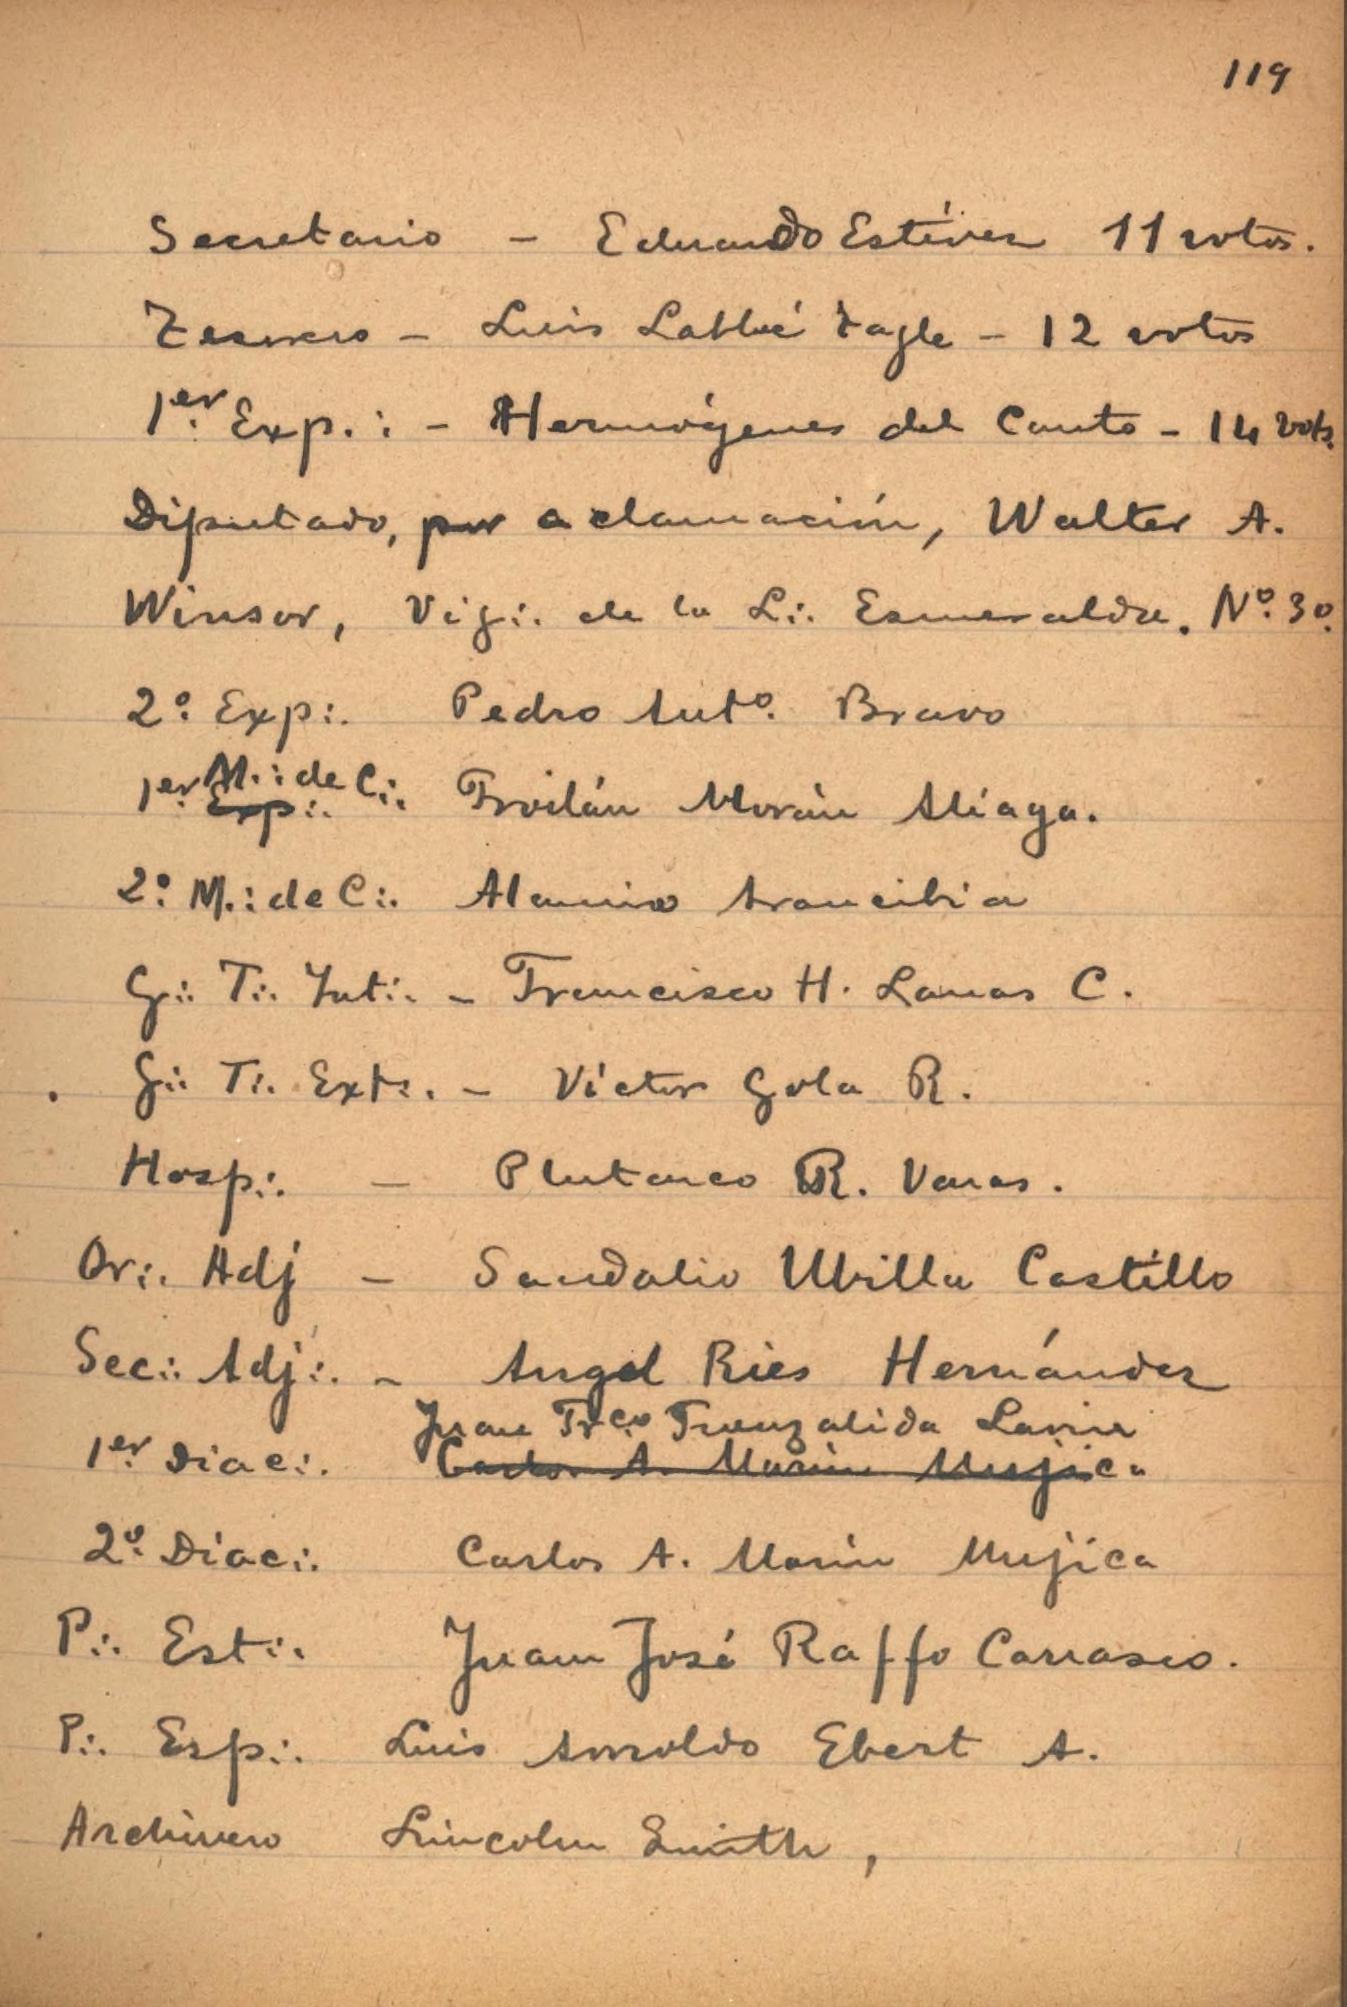 119
Secretario - Eduardo Estévez 11 votos.
Tesorero - Luis Labbé Tagle - 12 votos
1er Exp.: - Hermógenes del Canto - 14 vots.
Diputado, por aclamación, Walter A.
Winsor, Vig∴ de la L∴ Esmeralda. Nº 30.
2º Exp∴ Pedro Antº Bravo
M∴ de C∴
1er Exp∴ Froilán Morán Aliaga.
2º M∴ de C∴ Alamiro Arancibia
G∴ T∴ Int∴ - Francisco H. Lanas C.
G∴ T∴ Ext∴ - Víctor Gola R.
Hosp∴ - Plutarco R. Varas.
Or∴ Adj - Sandalio Ubilla Castillo
Sec∴ Adj∴ - Angel Ries Hernández
Juan Frco Fuenzalida
1er Diac∴ Carlos A. Marin Mujica
2º Diac∴ Carlos A. Marin Mujica
P∴ Est∴ Juan José Raffo Carrasco.
P∴ Esp∴ Luis Arnoldo Ebert A.
Archivero Lincoln Smith,